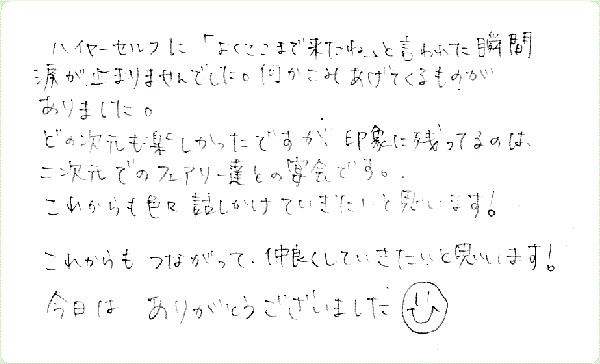 ハイヤーセルフに「よくここまで来たね」と言われた瞬間
涙が止まりませんでした。何かこみあげてくるものが
ありました。
どの次元も楽しかったですが、印象に残ってるのは、
二次元でのフェアリー達との宴会です。
これからも色々話しかけていきたいと思います!
これからもつながって、仲良くしていきたいと思います!
今日は ありがとうございました